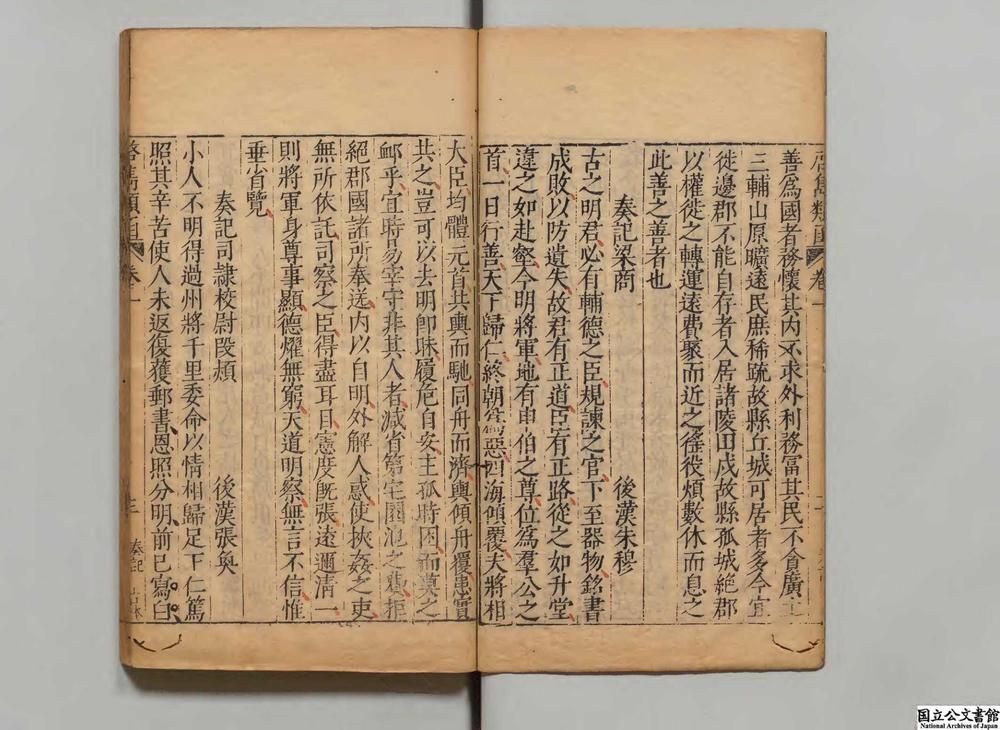 啓雋類函 卷一
善爲國者務懷其内不求外利務冨其民不貪廣土
三輔山原曠遠民庶稀䟽故縣丘城可居者多今宜
徙邊郡不能自存者入居諸陵田戍故縣孤城絕郡
以權徙之轉運遠費聚而近之徭役煩數休而息之
此善之善者也
奏記梁商 後漢朱穆
古之明君必有輔德之臣規諫之官下至器物銘書
成敗以防遺失故君有正道臣有正路從之如升堂
違之如赴壑今明將軍地有申伯之尊位爲羣公之
首一日行善天下歸仁終朝爲惡四海傾覆夫將相
大臣均體元首共輿而馳同舟而濟輿傾舟覆患實
共之豈可以去明卽昧履危自安主孤時困而莫之
䘏乎宜時易宰守非其人者減省第宅園池之費拒
絕郡國諸所奉送内以自明外解人惑使挾姦之吏
無所依託司察之臣得盡耳目憲度旣張逺邇清一
則將軍身尊事顯德燿無窮天道明察無言不信惟
垂省覽
奏記司隷校尉段熲 後漢張奐
小人不明得過州將千里委命以情相歸足下仁篤
照其辛苦使人未返復獲郵書恩照分明前已寫白
啓雋類函 卷一 奏記 古体
国立公文書館
National Archives of Japan